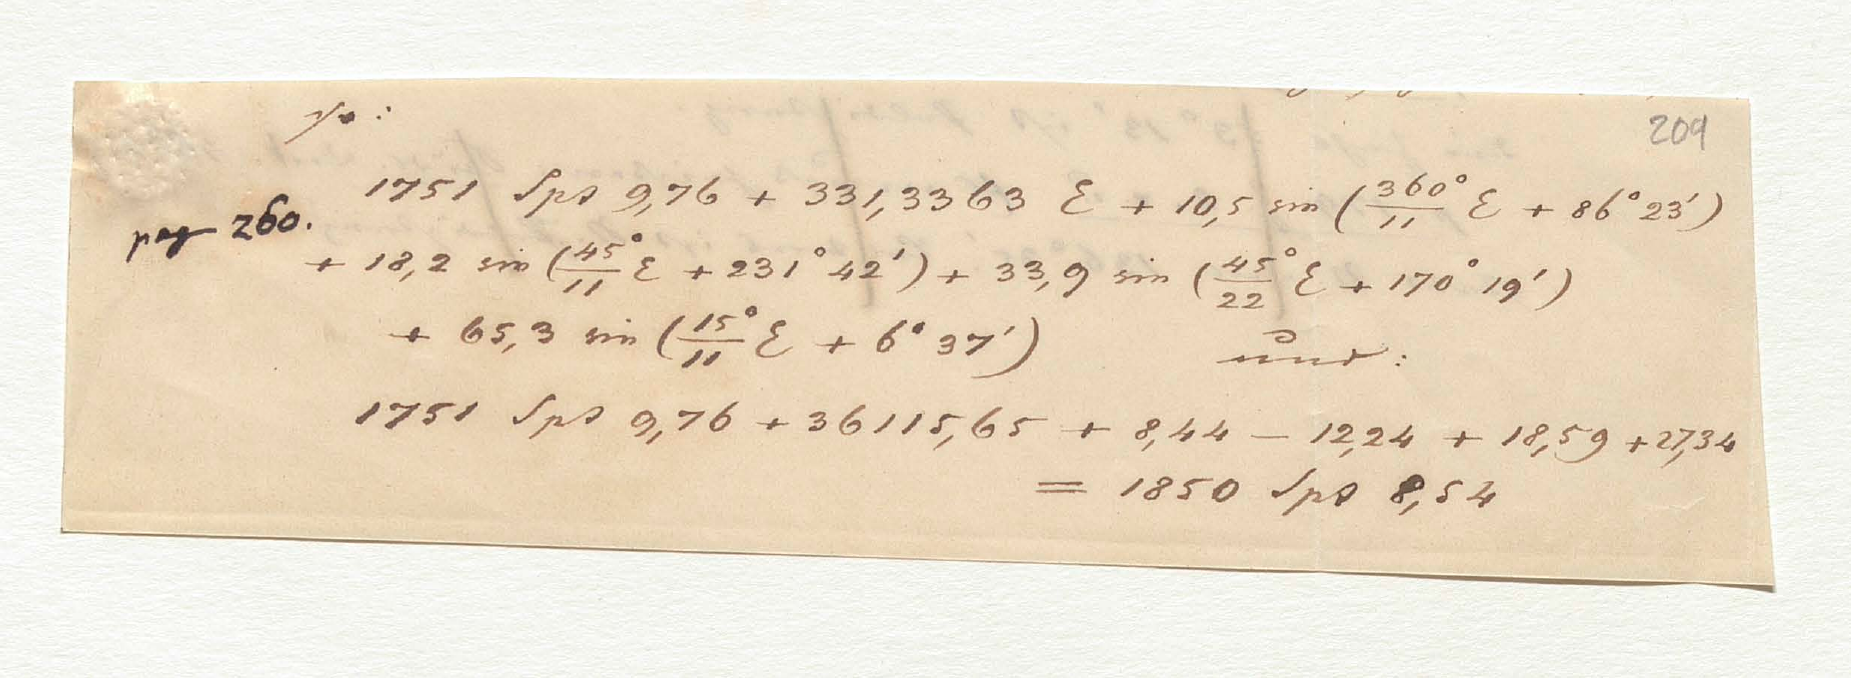 so:
209
1751 Sps 9,76 + 331,3363 ℰ + 10,5 sin (360°/11 ℰ + 86° 23')
pag 260.
+ 18,2 sin (45°/11 ℰ + 231° 42') + 33,9 sin (45°/22 ℰ + 170° 19')
+ 65,3 sin (15°/11 ℰ + 6° 37') und:
1751 Sps 9,76 + 36115,65 + 8,44 — 12,24 + 18,59 + 27,34
= 1850 Sps 8,54